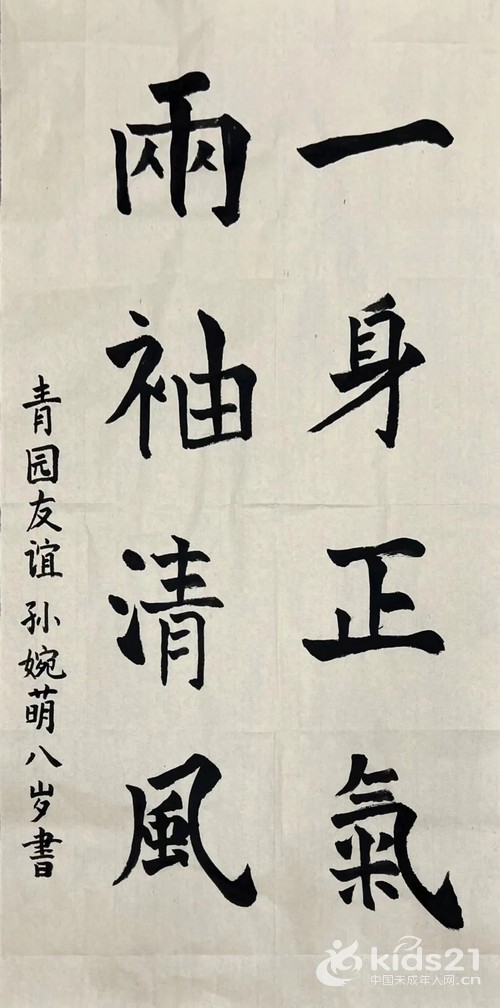 一身正氣
兩袖清風
青园友谊 孙婉萌八岁書
kids21
中国未成年人网.cn